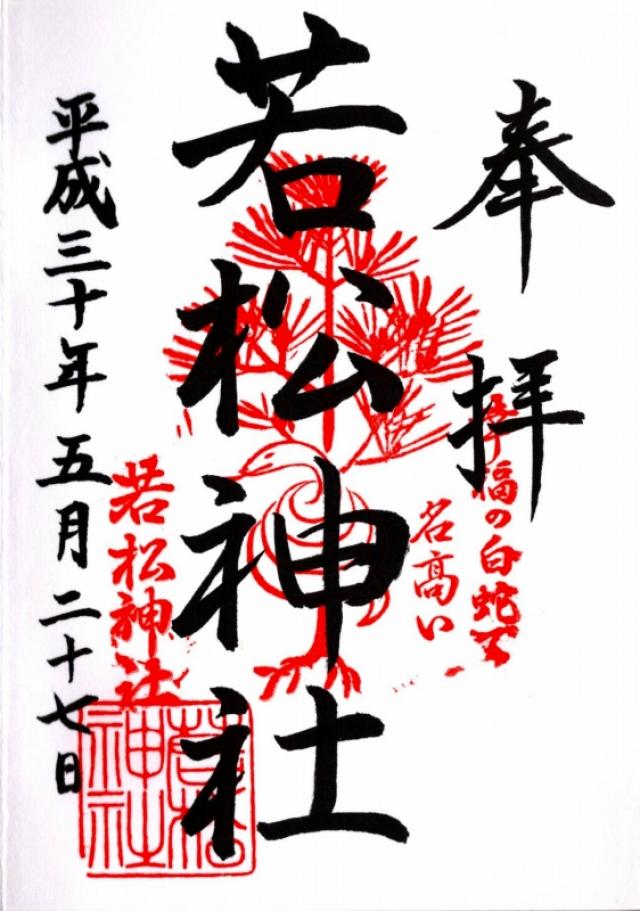 奉拝
幸福の白蛇で
名高い
若松神社
若松神社
若松神社
平成三十年五月二十七日